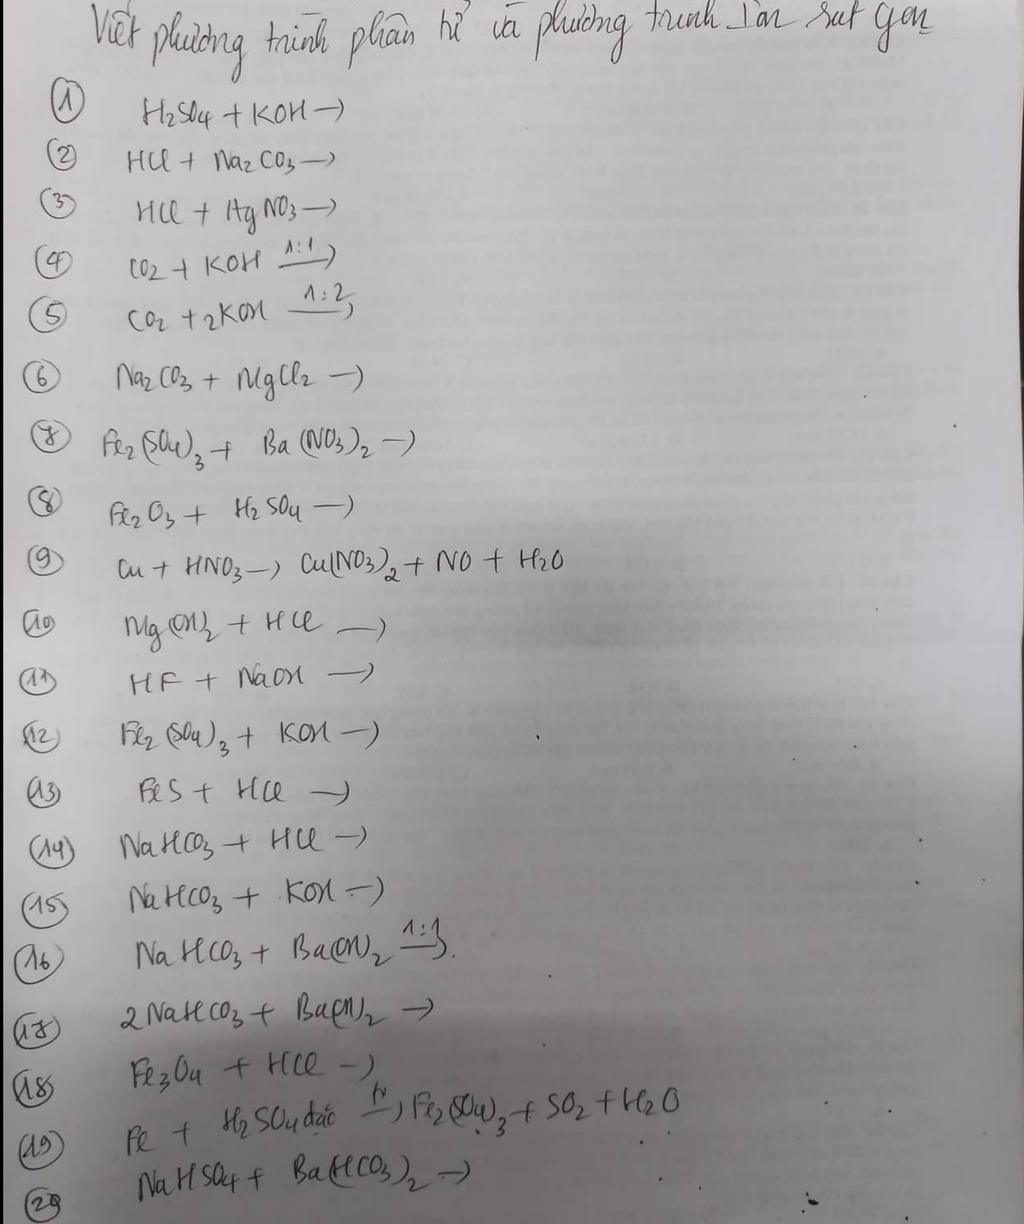 Viết phương trình phân tử và phương trình Ion rút gọn
① H₂SO₄ + KOH →
② HCl + Na₂CO₃ →
③ HCl + AgNO₃ →
④ CO₂ + KOH 1:1 →
⑤ CO₂ + 2KOH 1:2 →
⑥ Na₂CO₃ + MgCl₂ →
⑦ Fe₂(SO₄)₃ + Ba(NO₃)₂ →
⑧ Fe₂O₃ + H₂SO₄ →
⑨ Cu + HNO₃ → Cu(NO₃)₂ + NO + H₂O
⑩ Mg(OH)₂ + HCl →
⑪ HF + NaOH →
⑫ Fe₂(SO₄)₃ + KOH →
⑬ FeS + HCl →
⑭ NaHCO₃ + HCl →
⑮ NaHCO₃ + KOH →
⑯ NaHCO₃ + Ba(OH)₂ 1:1 →
⑰ 2NaHCO₃ + Ba(OH)₂ →
⑱ Fe₃O₄ + HCl →
⑲ Fe + H₂SO₄ đặc t° → Fe₂(SO₄)₃ + SO₂ + H₂O
⑳ NaHSO₄ + Ba(HCO₃)₂ →